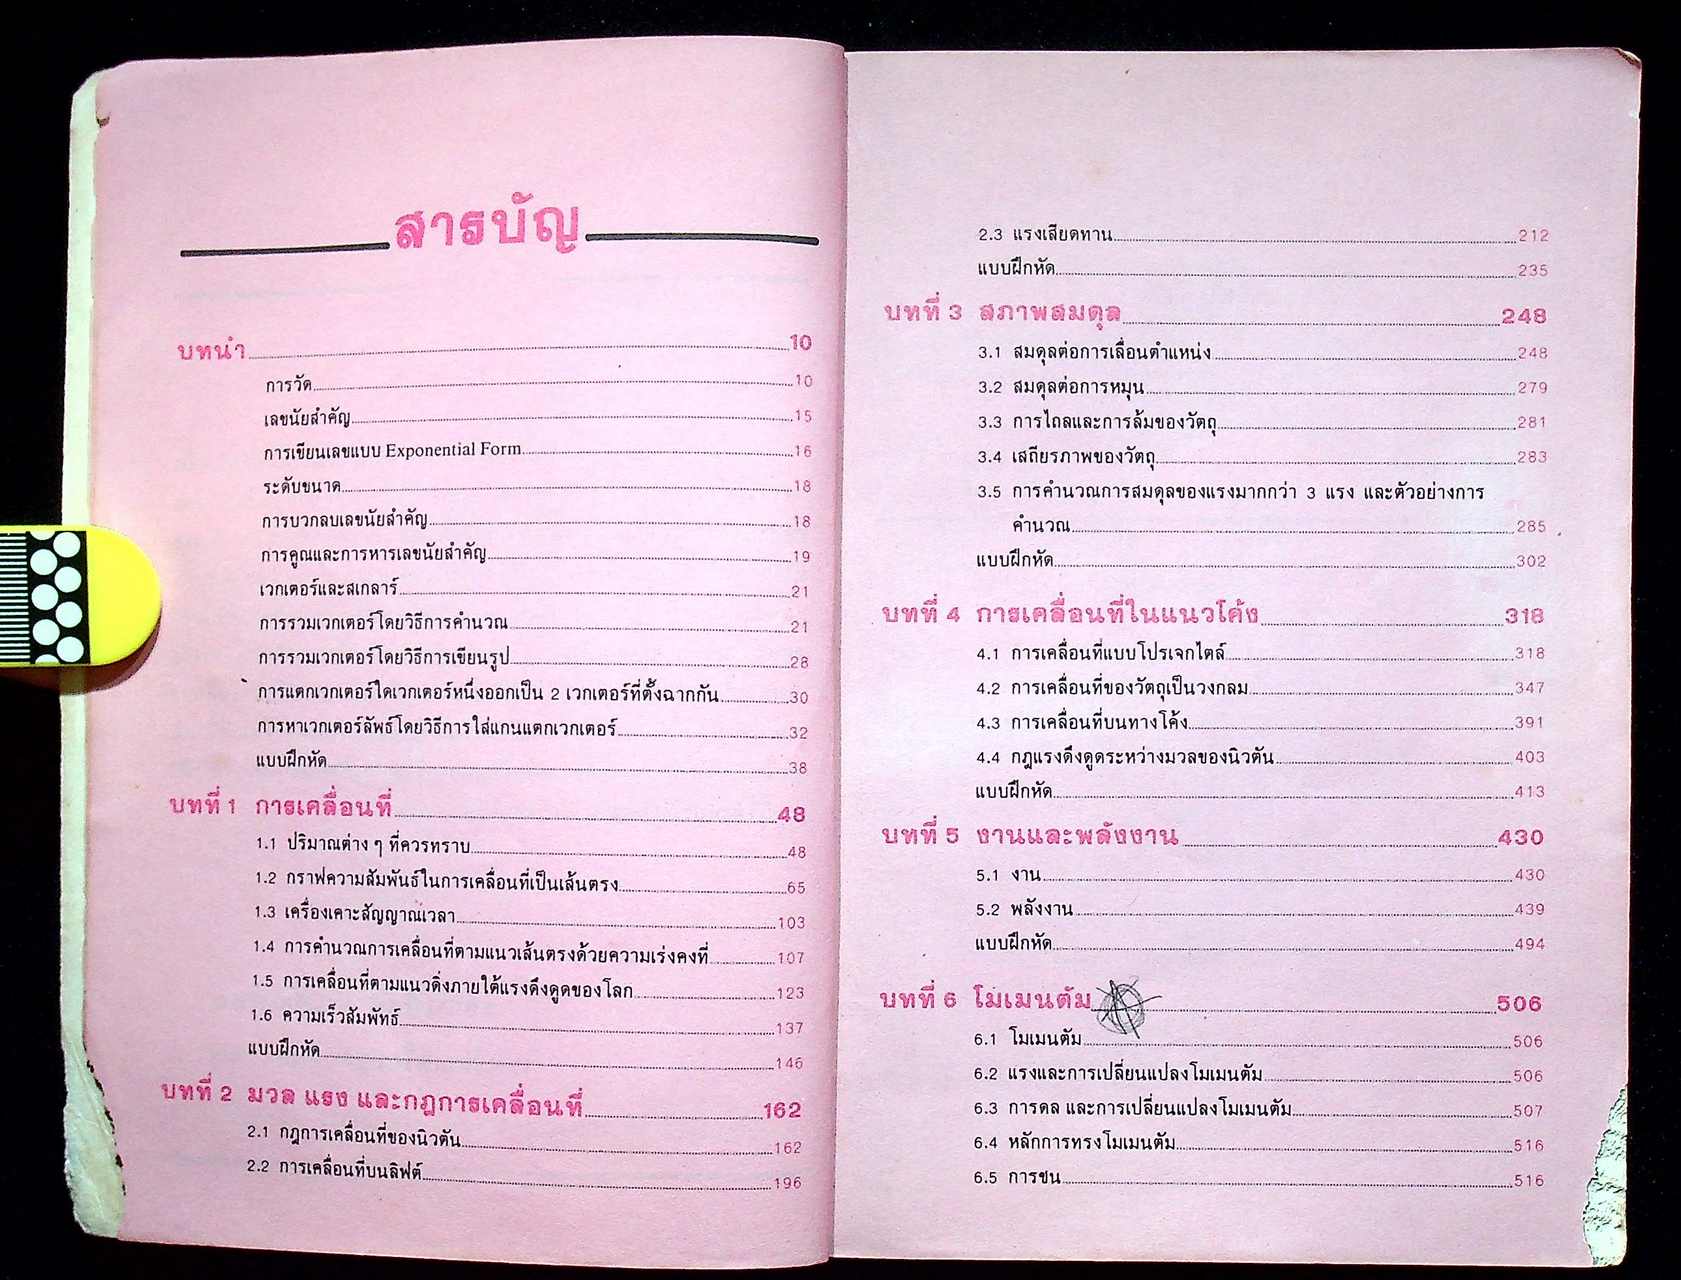 สารบัญ
บทนำ 10
การวัด 10
เลขนัยสำคัญ 15
การเขียนเลขแบบ Exponential Form 16
ระดับขนาด 18
การบวกลบเลขนัยสำคัญ 18
การคูณและการหารเลขนัยสำคัญ 19
เวกเตอร์และสเกลาร์ 21
การรวมเวกเตอร์โดยวิธีการคำนวณ 21
การรวมเวกเตอร์โดยวิธีการเขียนรูป 28
การแตกเวกเตอร์ใดเวกเตอร์หนึ่งออกเป็น 2 เวกเตอร์ที่ตั้งฉากกัน 30
การหาเวกเตอร์ลัพธ์โดยวิธีการใส่แกนแตกเวกเตอร์ 32
แบบฝึกหัด 38
บทที่ 1 การเคลื่อนที่ 48
1.1 ปริมาณต่าง ๆ ที่ควรทราบ 48
1.2 กราฟความสัมพันธ์ในการเคลื่อนที่เป็นเส้นตรง 65
1.3 เครื่องเคาะสัญญาณเวลา 103
1.4 การคำนวณการเคลื่อนที่ตามแนวเส้นตรงด้วยความเร่งคงที่ 107
1.5 การเคลื่อนที่ตามแนวดิ่งภายใต้แรงดึงดูดของโลก 123
1.6 ความเร็วสัมพัทธ์ 137
แบบฝึกหัด 146
บทที่ 2 มวล แรง และกฎการเคลื่อนที่ 162
2.1 กฎการเคลื่อนที่ของนิวตัน 162
2.2 การเคลื่อนที่บนลิฟต์ 196
2.3 แรงเสียดทาน 212
แบบฝึกหัด 235
บทที่ 3 สภาพสมดุล 248
3.1 สมดุลต่อการเลื่อนตำแหน่ง 248
3.2 สมดุลต่อการหมุน 279
3.3 การไถลและการล้มของวัตถุ 281
3.4 เสถียรภาพของวัตถุ 283
3.5 การคำนวณการสมดุลของแรงมากกว่า 3 แรง และตัวอย่างการ
คำนวณ 285
แบบฝึกหัด 302
บทที่ 4 การเคลื่อนที่ในแนวโค้ง 318
4.1 การเคลื่อนที่แบบโปรเจกไตล์ 318
4.2 การเคลื่อนที่ของวัตถุเป็นวงกลม 347
4.3 การเคลื่อนที่บนทางโค้ง 391
4.4 กฎแรงดึงดูดระหว่างมวลของนิวตัน 403
แบบฝึกหัด 413
บทที่ 5 งานและพลังงาน 430
5.1 งาน 430
5.2 พลังงาน 439
แบบฝึกหัด 494
บทที่ 6 โมเมนตัม 506
6.1 โมเมนตัม 506
6.2 แรงและการเปลี่ยนแปลงโมเมนตัม 506
6.3 การดล และการเปลี่ยนแปลงโมเมนตัม 507
6.4 หลักการทรงโมเมนตัม 516
6.5 การชน 516